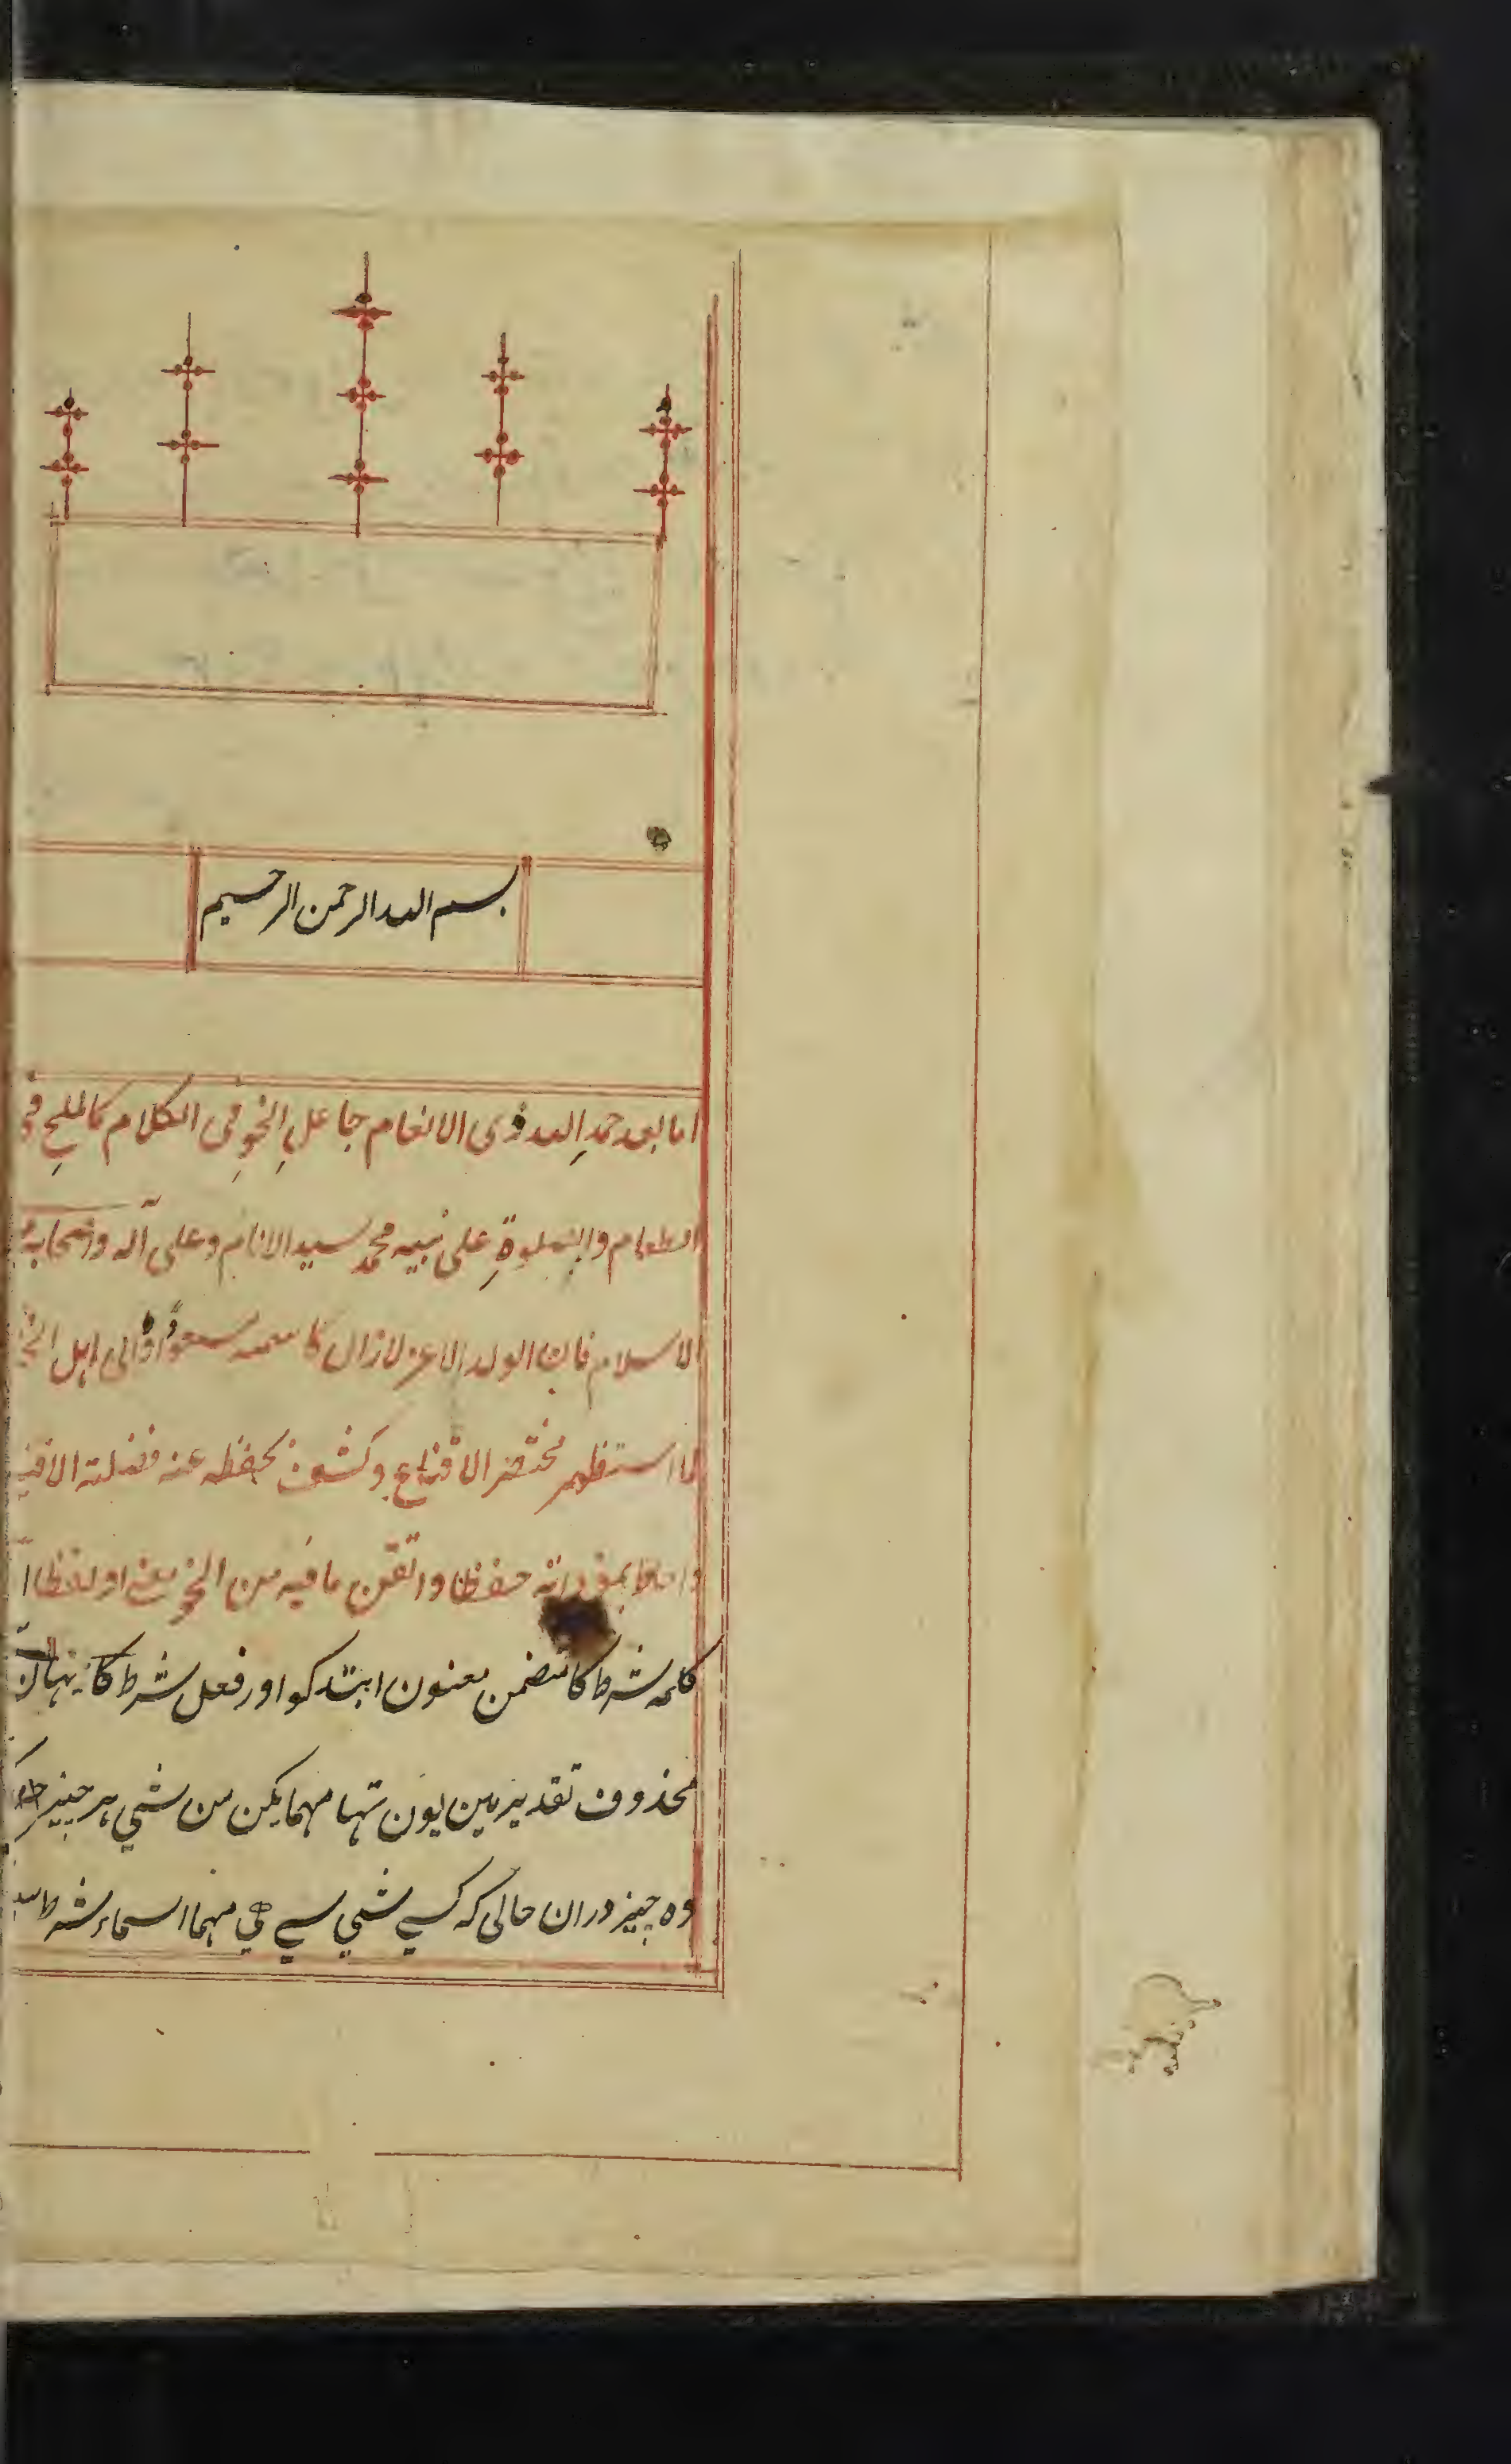 بسم الله الرحمن الرحيم
اما بعد حمدِ الله ذى الانعام جاعلِ النحوِ فى الكلام كالملحِ فى
الطعام والصلوةِ على نبيه محمد سيد الانام وعلى آله واصحابه
الاسلام فان الولد الاعز لازال كاسمه مسعودًا والى اهل الخير
لما استظهر مختصر الاقناع وكشف بحفظه عنه فضلته القناع
واحاط بمفرداته حفظا واتقن ما فيه من النحو معنى ولفظا
كلمه شرط كا متضمن معنون ابتد كو اور فعل شرط كا يہان
محذوف تقدير مين يون تہا مہما يكن من شي ہر چيز
وہ چيز دران حالى كہ كسے شي سے هي مہما اسماء شرط